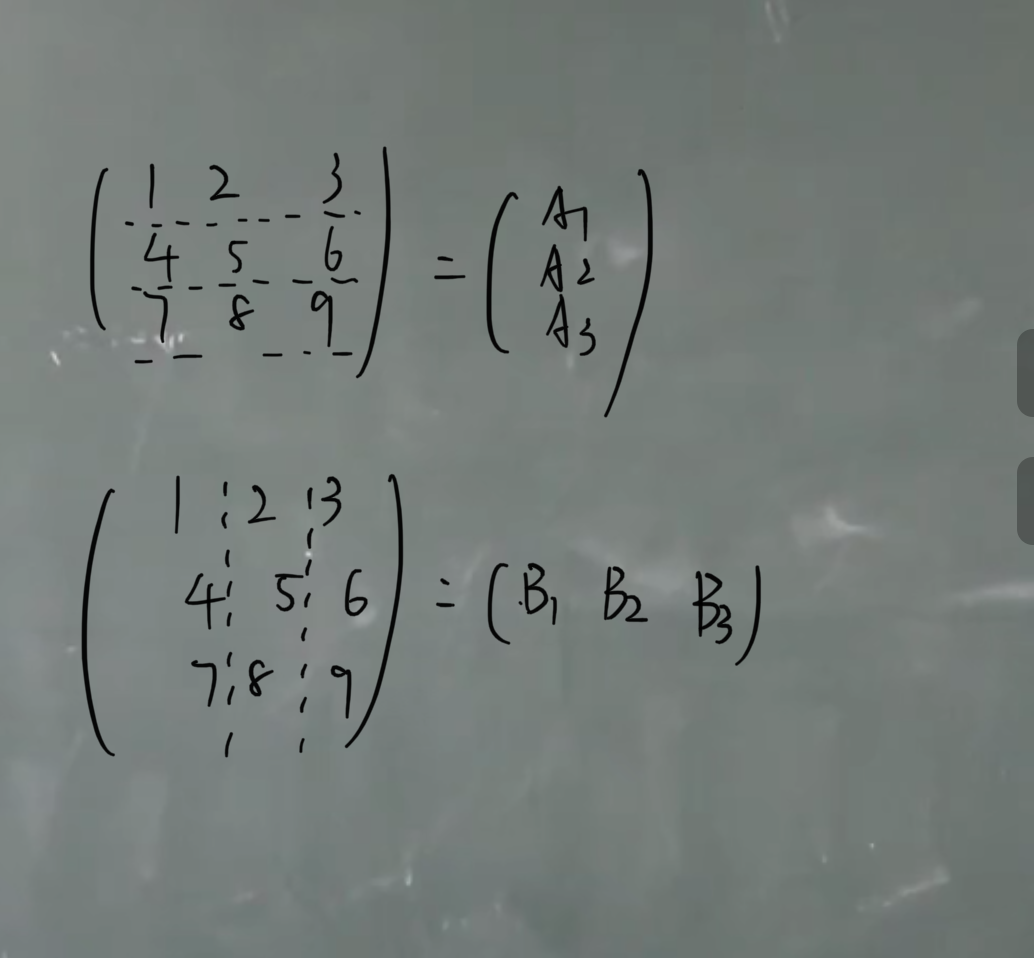 ( 1 2 3
4 5 6
7 8 9 ) = ( A1
A2
A3 )
( 1 2 3
4 5 6
7 8 9 ) = ( B1 B2 B3 )